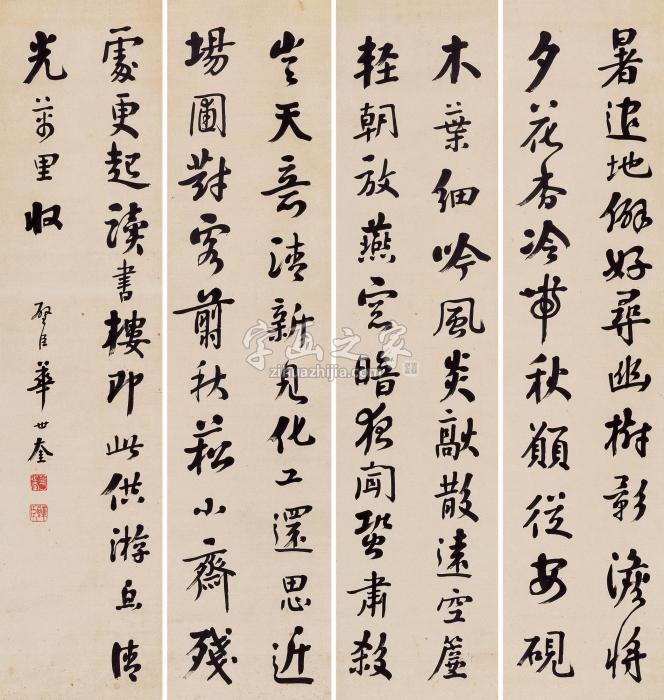 暑追地僻好尋幽樹影澹將
夕花香冷帶秋願從安硯
木葉細吟風炎歊散遠空簷
輕朝放燕窓暗夜聞蛩肅殺
豈天意清新見化工還思近
場圃對客翦秋菘小齋殘
處更起讀書樓即此供游息清
光萬里收
壁臣華世奎
字画之家
zihuazhijia.com